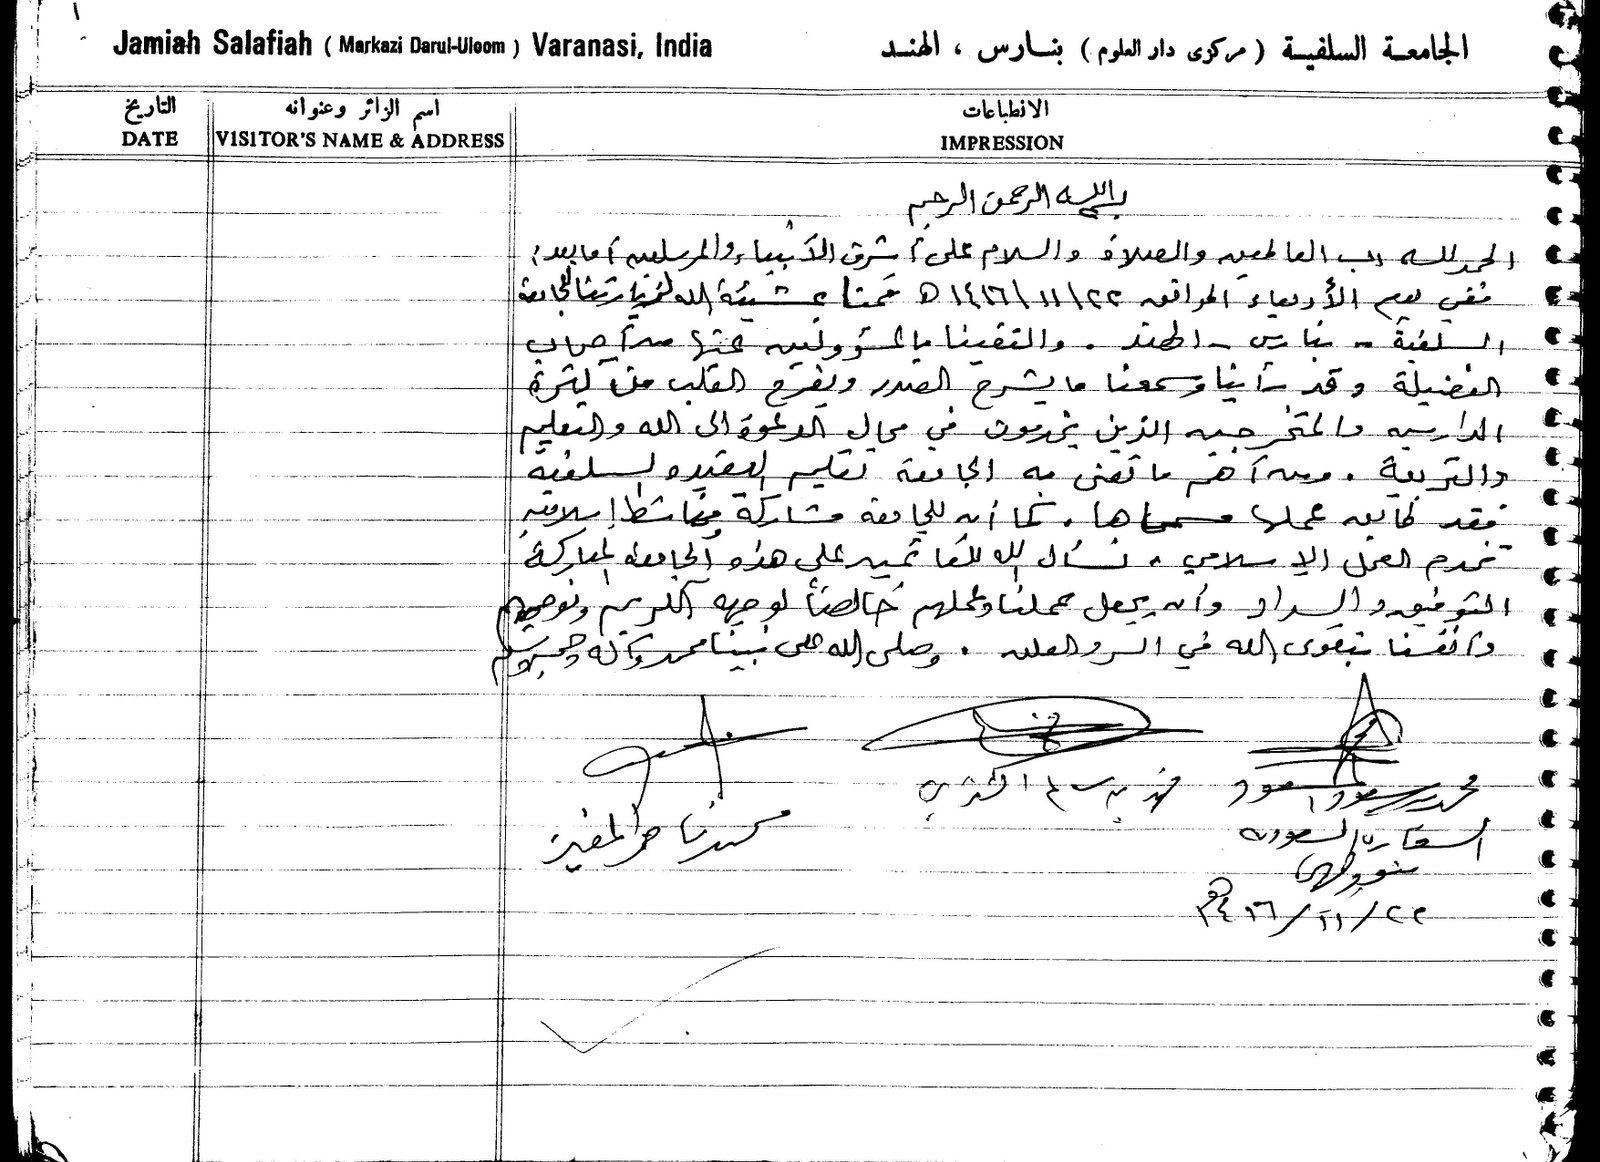 Jamiah Salafiah ( Markazi Darul-Uloom ) Varanasi, India
الجامعة السلفية ( مركزى دار العلوم ) بنارس ، الهند
التاريخ
DATE
اسم الزائر وعنوانه
VISITOR'S NAME & ADDRESS
الانطباعات
IMPRESSION
بسم الله الرحمن الرحيم
الحمد لله رب العالمين والصلاة والسلام على أشرف الأنبياء والمرسلين أما بعد:
ففي يوم الأربعاء الموافق ٢٢/١١/١٤١٦ه قمنا بمشيئة الله بزيارتنا للجامعة
السلفية - بنارس - الهند . والتقينا بالمسؤولين عنها من أصحاب
الفضيلة وقد رأينا وسمعنا ما يشرح الصدر ويفرح القلب من كثرة
الدارسين والمتخرجين الذين يخدمون في مجال الدعوة الى الله والتعليم
والتربية . ومن أهم ما تعنى به الجامعة تعليم العقيدة السلفية
فقد طابق عملها مسماها . كما أن للجامعة مشاركة إسلامية
تخدم العمل الإسلامي ، نسأل الله للقائمين على هذه الجامعة المباركة
التوفيق والسداد وأن يجعل عملنا وعملهم خالصاً لوجهه الكريم ونوصيهم
وأنفسنا بتقوى الله في السر والعلن . وصلى الله على نبينا محمد وآله وصحبه وسلم
محمد بن سعود السعود
بن سالم
محمد ناصر
السفارة السعودية
نيودلهي
٢٢/١١/١٤١٦ه